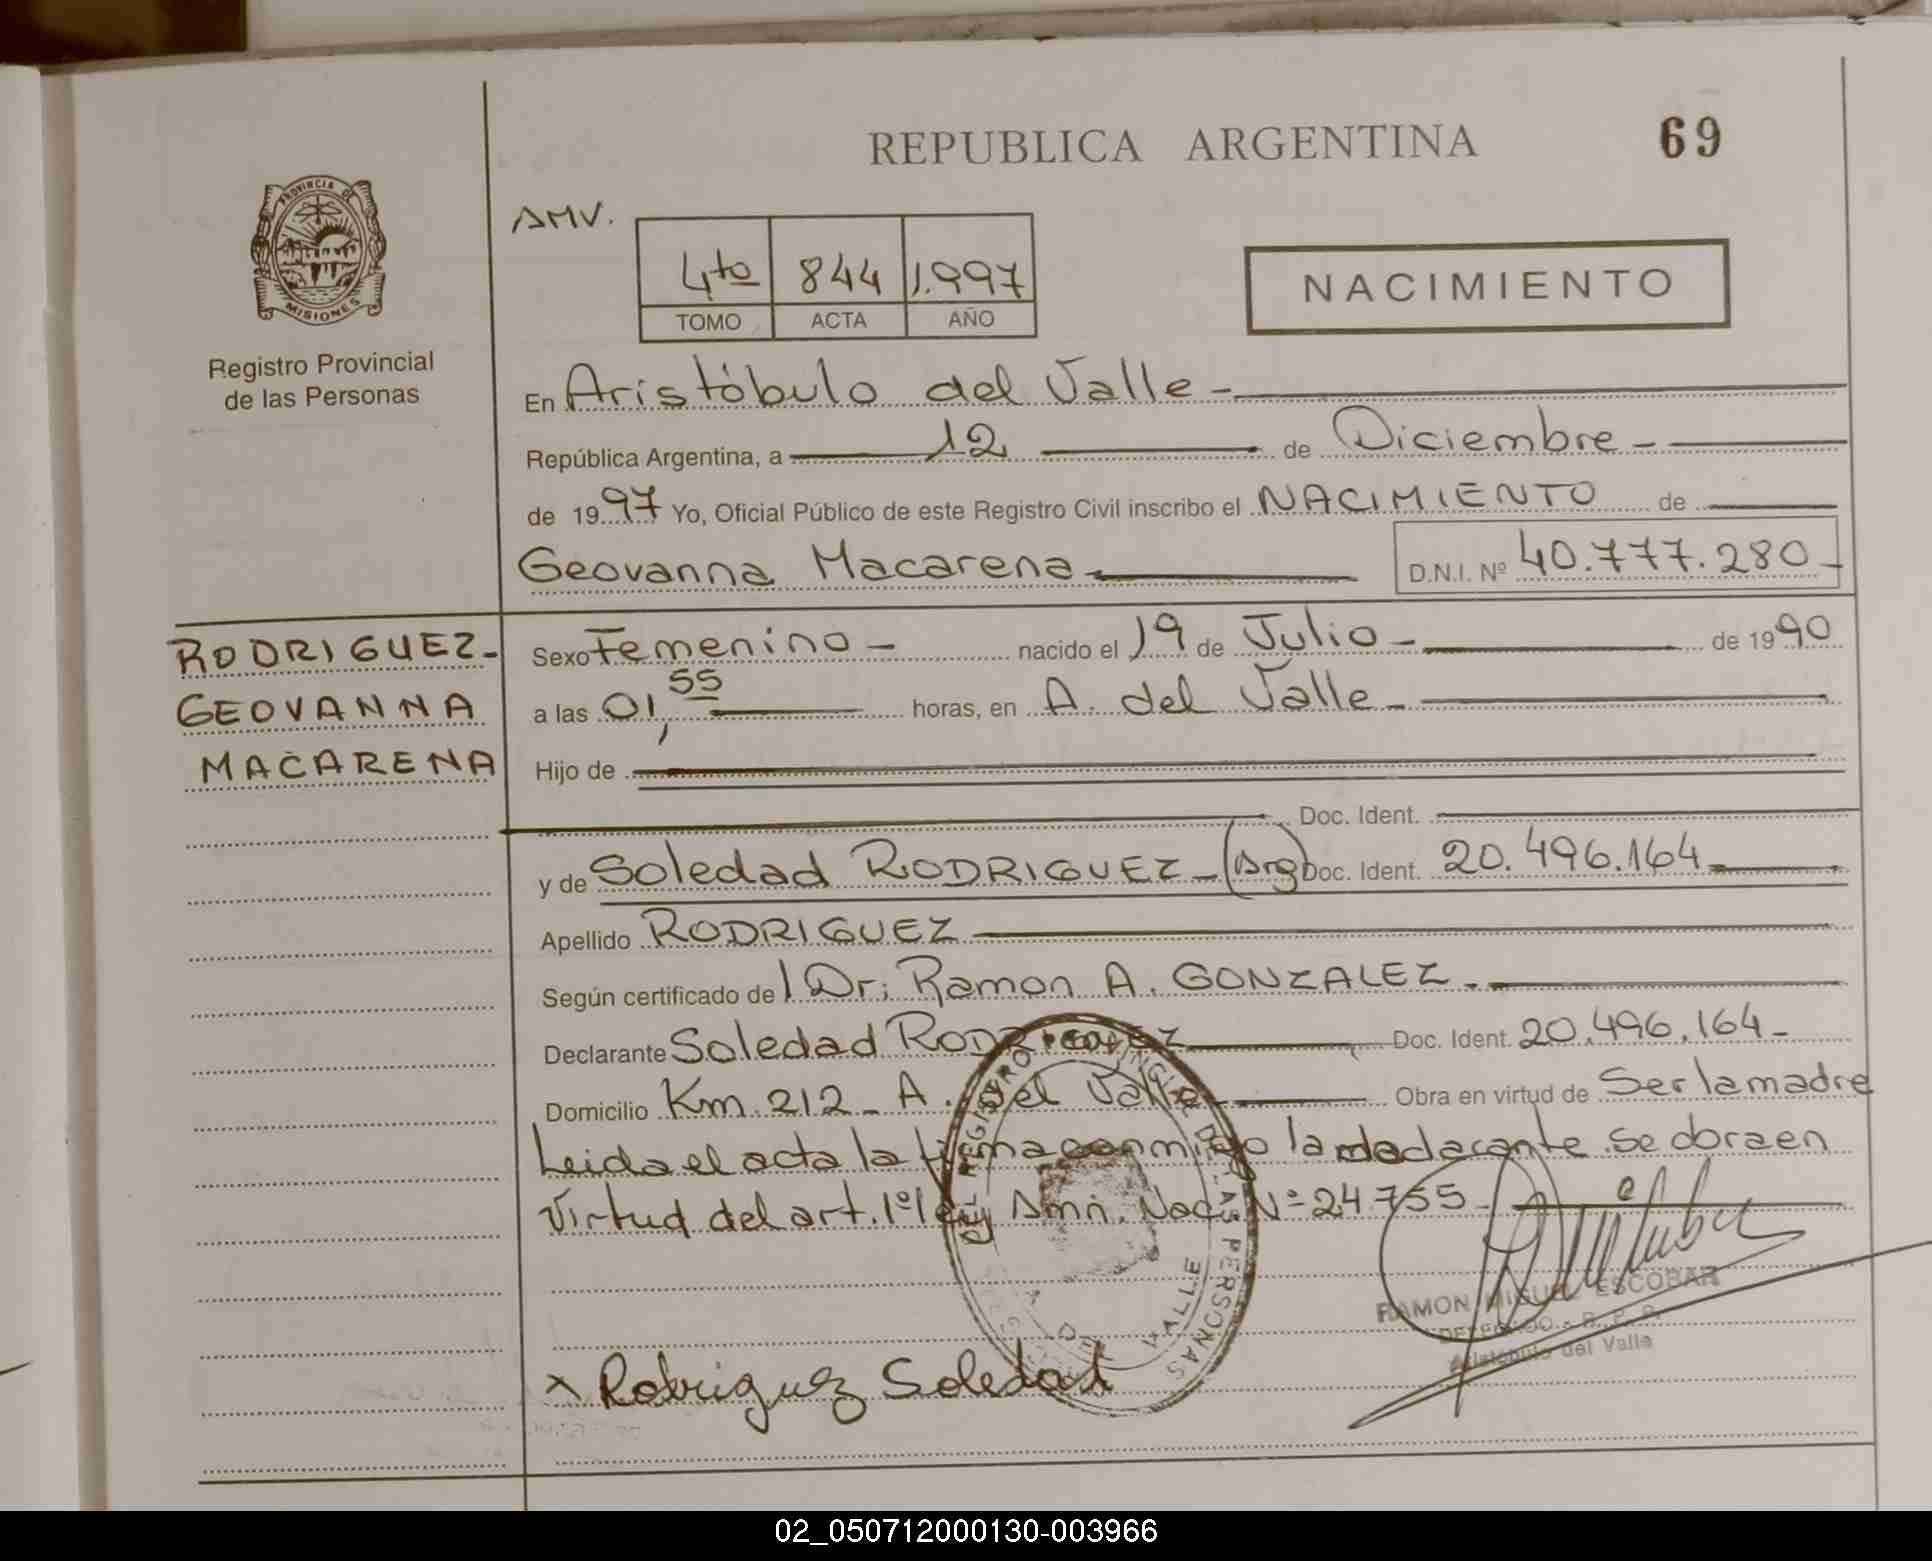 REPUBLICA ARGENTINA
69
PROVINCIA DE
MISIONES
Registro Provincial
de las Personas
AMV.
4to 844 1.997
TOMO ACTA AÑO
NACIMIENTO
En Aristóbulo del Valle -
República Argentina, a 12 de Diciembre -
de 1997 Yo, Oficial Público de este Registro Civil inscribo el NACIMIENTO de
Geovanna Macarena D.N.I. Nº 40.777.280 -
RODRIGUEZ -
GEOVANNA
MACARENA
Sexo Femenino - nacido el 19 de Julio - de 1990
a las 01,55 horas, en A. del Valle -
Hijo de
Doc. Ident.
y de Soledad RODRIGUEZ - (Arg) Doc. Ident. 20.496.164
Apellido RODRIGUEZ
Según certificado de l Dr: Ramon A. GONZALEZ.
Declarante Soledad RODRIGUEZ Doc. Ident. 20.496.164 -
Domicilio Km 212 - A. del Valle Obra en virtud de Ser la madre
Leida el acta la firma conmigo la declarante. Se obra en
Virtud del art. 1º ley Nac. Nº 24755 -
DEL REGISTRO PROVINCIAL DE LAS PERSONAS
DEL VALLE
RAMON MIGUEL ESCOBAR
DELEGADO - R. P. P.
Aristóbulo del Valle
x Rodriguez Soledad
02_050712000130-003966